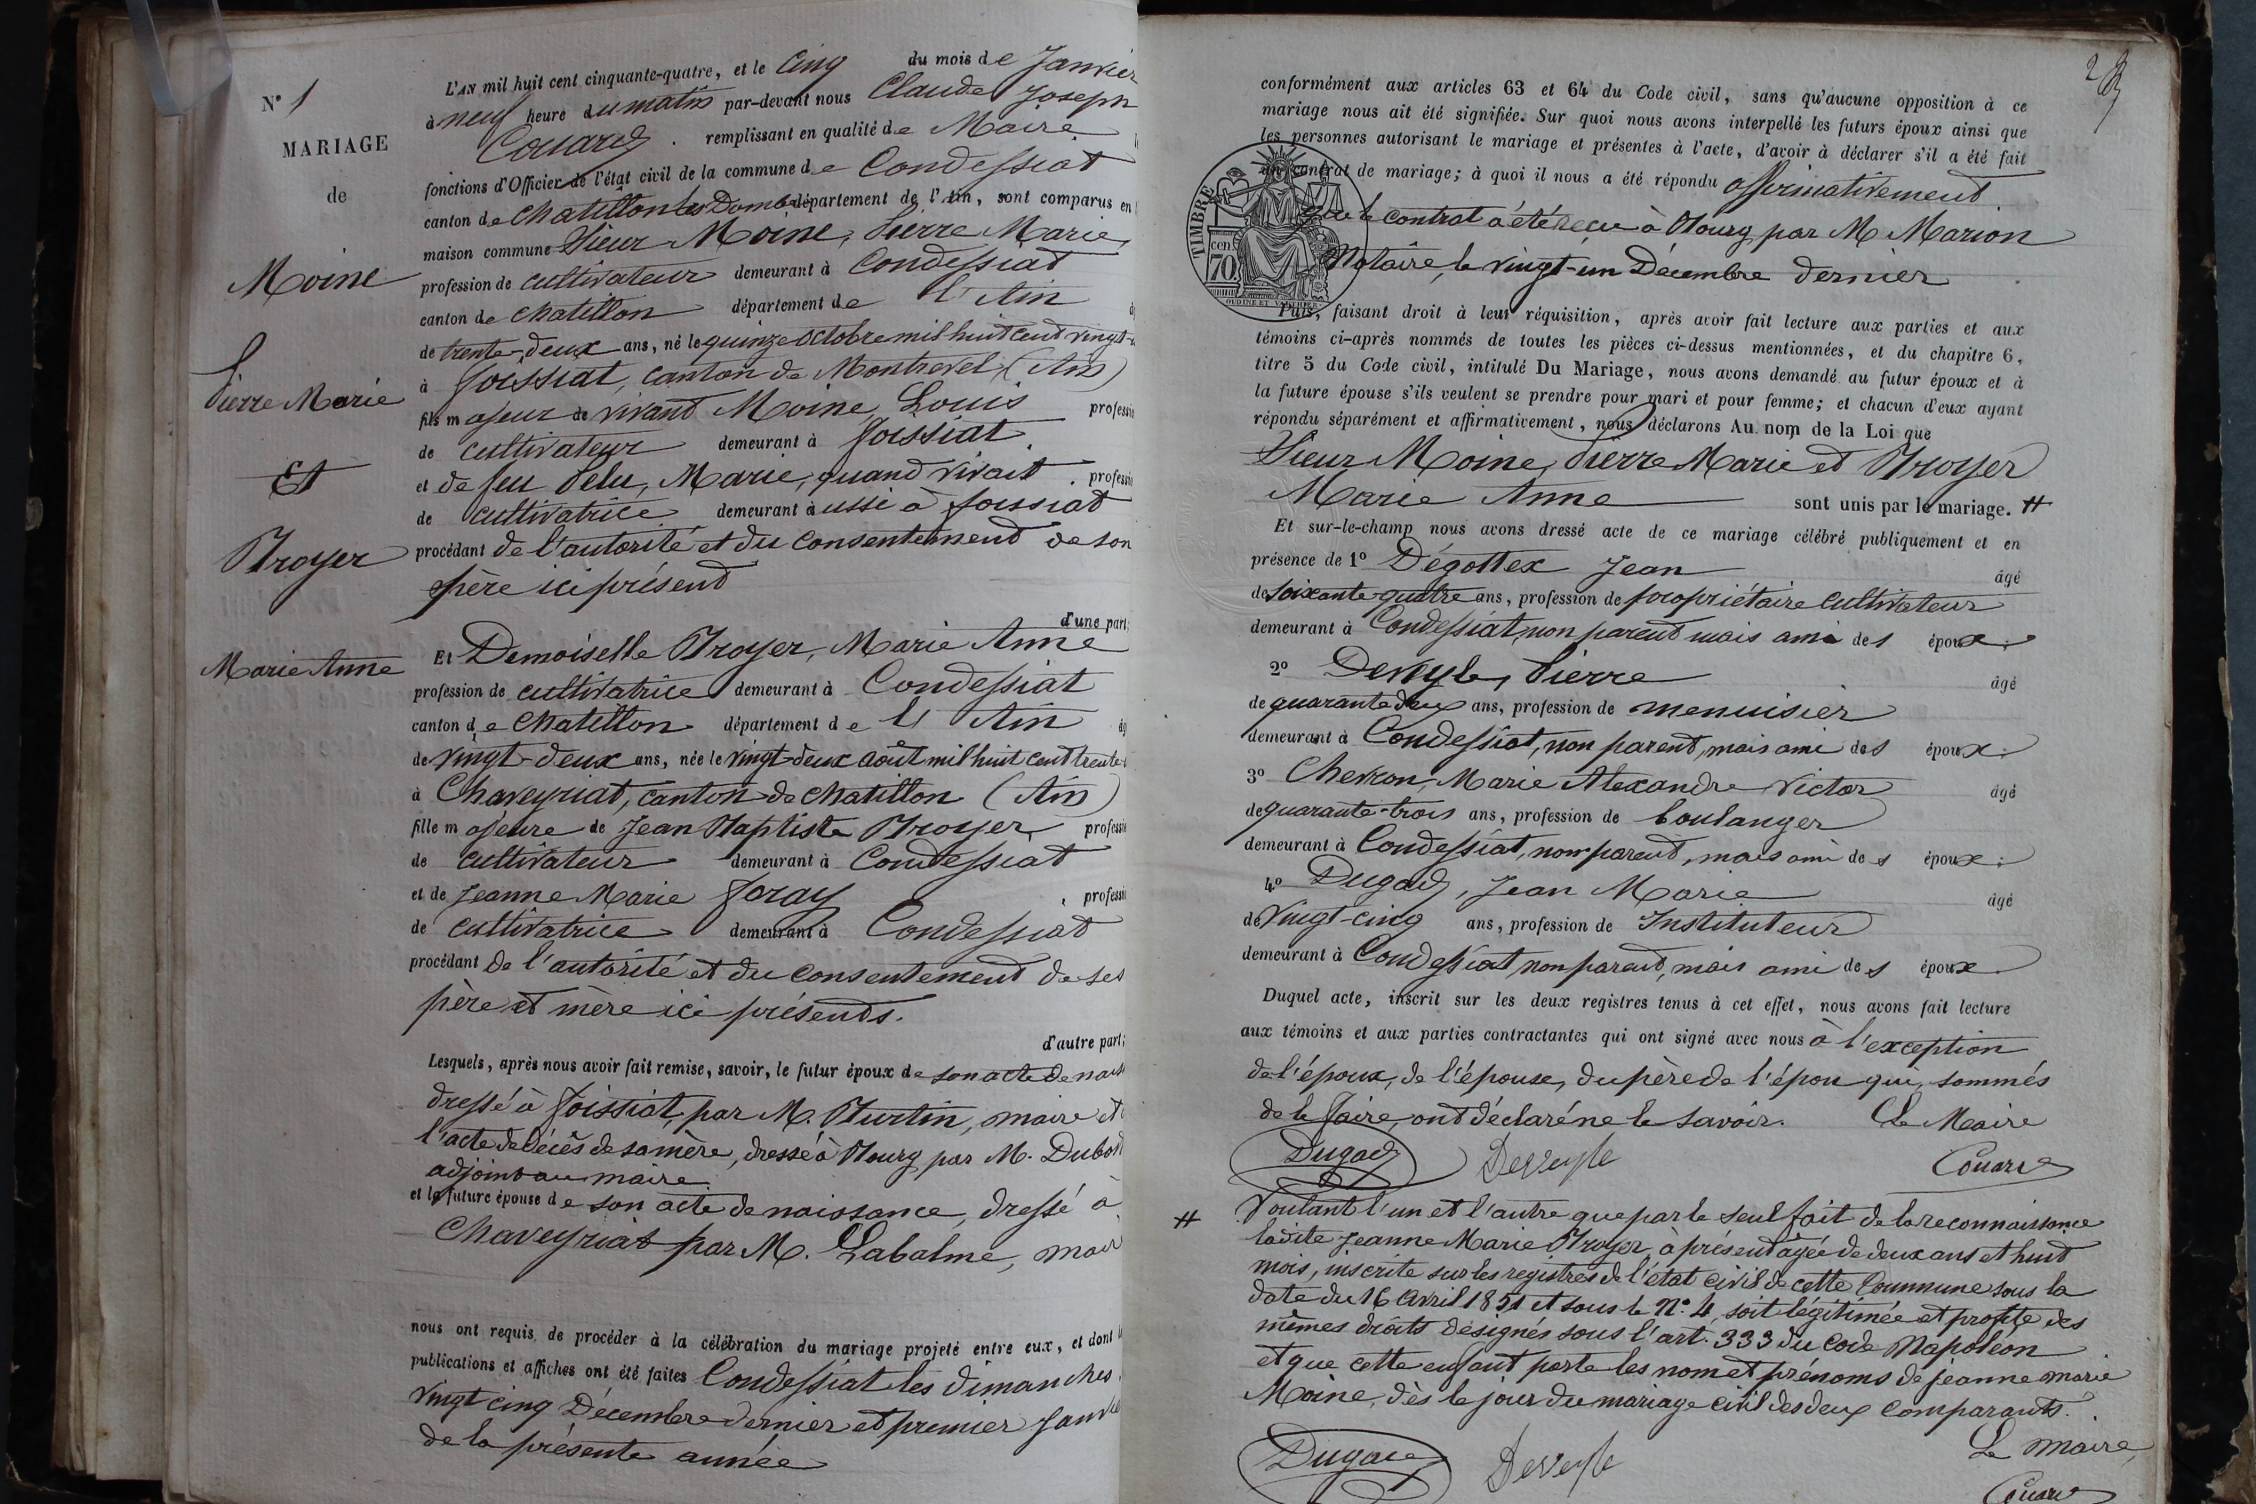 N° 1
MARIAGE
de
Moine
Pierre Marie
Et
Broyer
Marie Anne
L'AN mil huit cent cinquante-quatre, et le Cinq du mois de Janvier
à neuf heure du matin par-devant nous Claude Joseph
Couard . remplissant en qualité de Maire
fonctions d'Officier de l'état civil de la commune de Condessiat
canton de Chatillon les Dombes département de l'Ain, sont comparus en
maison commune Sieur Moine, Pierre Marie,
profession de cultivateur demeurant à Condessiat
canton de Chatillon département de l'Ain
de trente-deux ans, né le quinze octobre mil huit cent vingt-
à Foissiat, canton de Montrevel (Ain)
fils majeur de vivant Moine, Louis profession
de cultivateur demeurant à Foissiat.
et de feu Pelu, Marie, quand vivait profession
de cultivatrice demeurant aussi à Foissiat
procédant de l'autorité et du consentement de son
père ici présent
d'une part;
Et Demoiselle Broyer, Marie Anne
profession de cultivatrice demeurant à Condessiat
canton de Chatillon département de l'Ain
de vingt-deux ans, née le vingt-deux août mil huit cent trente-
à Chaveyriat, canton de Chatillon (Ain)
fille majeure de Jean Baptiste Broyer, profession
de cultivateur demeurant à Condessiat
et de Jeanne Marie Foray , profession
de cultivatrice demeurant à Condessiat
procédant de l'autorité et du consentement de ses
père et mère ici présents.
d'autre part;
Lesquels, après nous avoir fait remise, savoir, le futur époux de son acte de naiss
dressé à Foissiat, par M. Burtin, maire et
l'acte de décès de sa mère, dressé à Bourg par M. Dubost
adjoint au maire
et la future épouse de son acte de naissance, dressé à
Chaveyriat par M. Labalme, maire
nous ont requis de procéder à la célébration du mariage projeté entre eux, et dont
publications et affiches ont été faites Condessiat les dimanches
vingt cinq Décembre dernier et premier Janvier
de la présente année
conformément aux articles 63 et 64 du Code civil, sans qu'aucune opposition à ce
mariage nous ait été signifiée. Sur quoi nous avons interpellé les futurs époux ainsi que
les personnes autorisant le mariage et présentes à l'acte, d'avoir à déclarer s'il a été fait
un contrat de mariage; à quoi il nous a été répondu affirmativement
que le contrat a été reçu à Bourg par M Marion
Notaire, le vingt-un Décembre dernier
TIMBRE
cen
70
OUDINÉ ET VAUTHIER
Puis, faisant droit à leur réquisition, après avoir fait lecture aux parties et aux
témoins ci-après nommés de toutes les pièces ci-dessus mentionnées, et du chapitre 6,
titre 5 du Code civil, intitulé Du Mariage, nous avons demandé au futur époux et à
la future épouse s'ils veulent se prendre pour mari et pour femme; et chacun d'eux ayant
répondu séparément et affirmativement, nous déclarons Au nom de la Loi que
Sieur Moine, Pierre Marie et Broyer
Marie Anne sont unis par le mariage. #
Et sur-le-champ nous avons dressé acte de ce mariage célébré publiquement et en
présence de 1° Dégottex Jean âgé
de soixante-quatre ans, profession de propriétaire cultivateur
demeurant à Condessiat, non parent mais ami des époux;
2° Deveyle, Pierre âgé
de quarante deux ans, profession de menuisier
demeurant à Condessiat, non parent, mais ami des époux.
3° Chevron, Marie Alexandre Victor âgé
de quarante-trois ans, profession de boulanger
demeurant à Condessiat, non parent, mais ami des époux;
4° Dugad, Jean Marie âgé
de Vingt-cinq ans, profession de Instituteur
demeurant à Condessiat non parent, mais ami des époux
Duquel acte, inscrit sur les deux registres tenus à cet effet, nous avons fait lecture
aux témoins et aux parties contractantes qui ont signé avec nous à l'exception
de l'époux, de l'épouse, du père de l'épou qui, sommés
de le faire, ont déclaré ne le savoir. Le Maire
Dugad Deveyle Couard
# Voulant l'un et l'autre que par le seul fait de la reconnaissance
ladite Jeanne Marie Broyer, à présent âgée de deux ans et huit
mois, inscrite sur les registres de l'état civil de cette Commune sous la
date du 16 avril 1851 et sous le N° 4, soit légitimée et profite des
mêmes droits désignés sous l'art. 333 du code Napoléon
et que cette enfant porte les nom et prénoms de jeanne marie
Moine, dès le jour du mariage civil des deux comparants.
Le maire,
Dugad Deveyle Couard